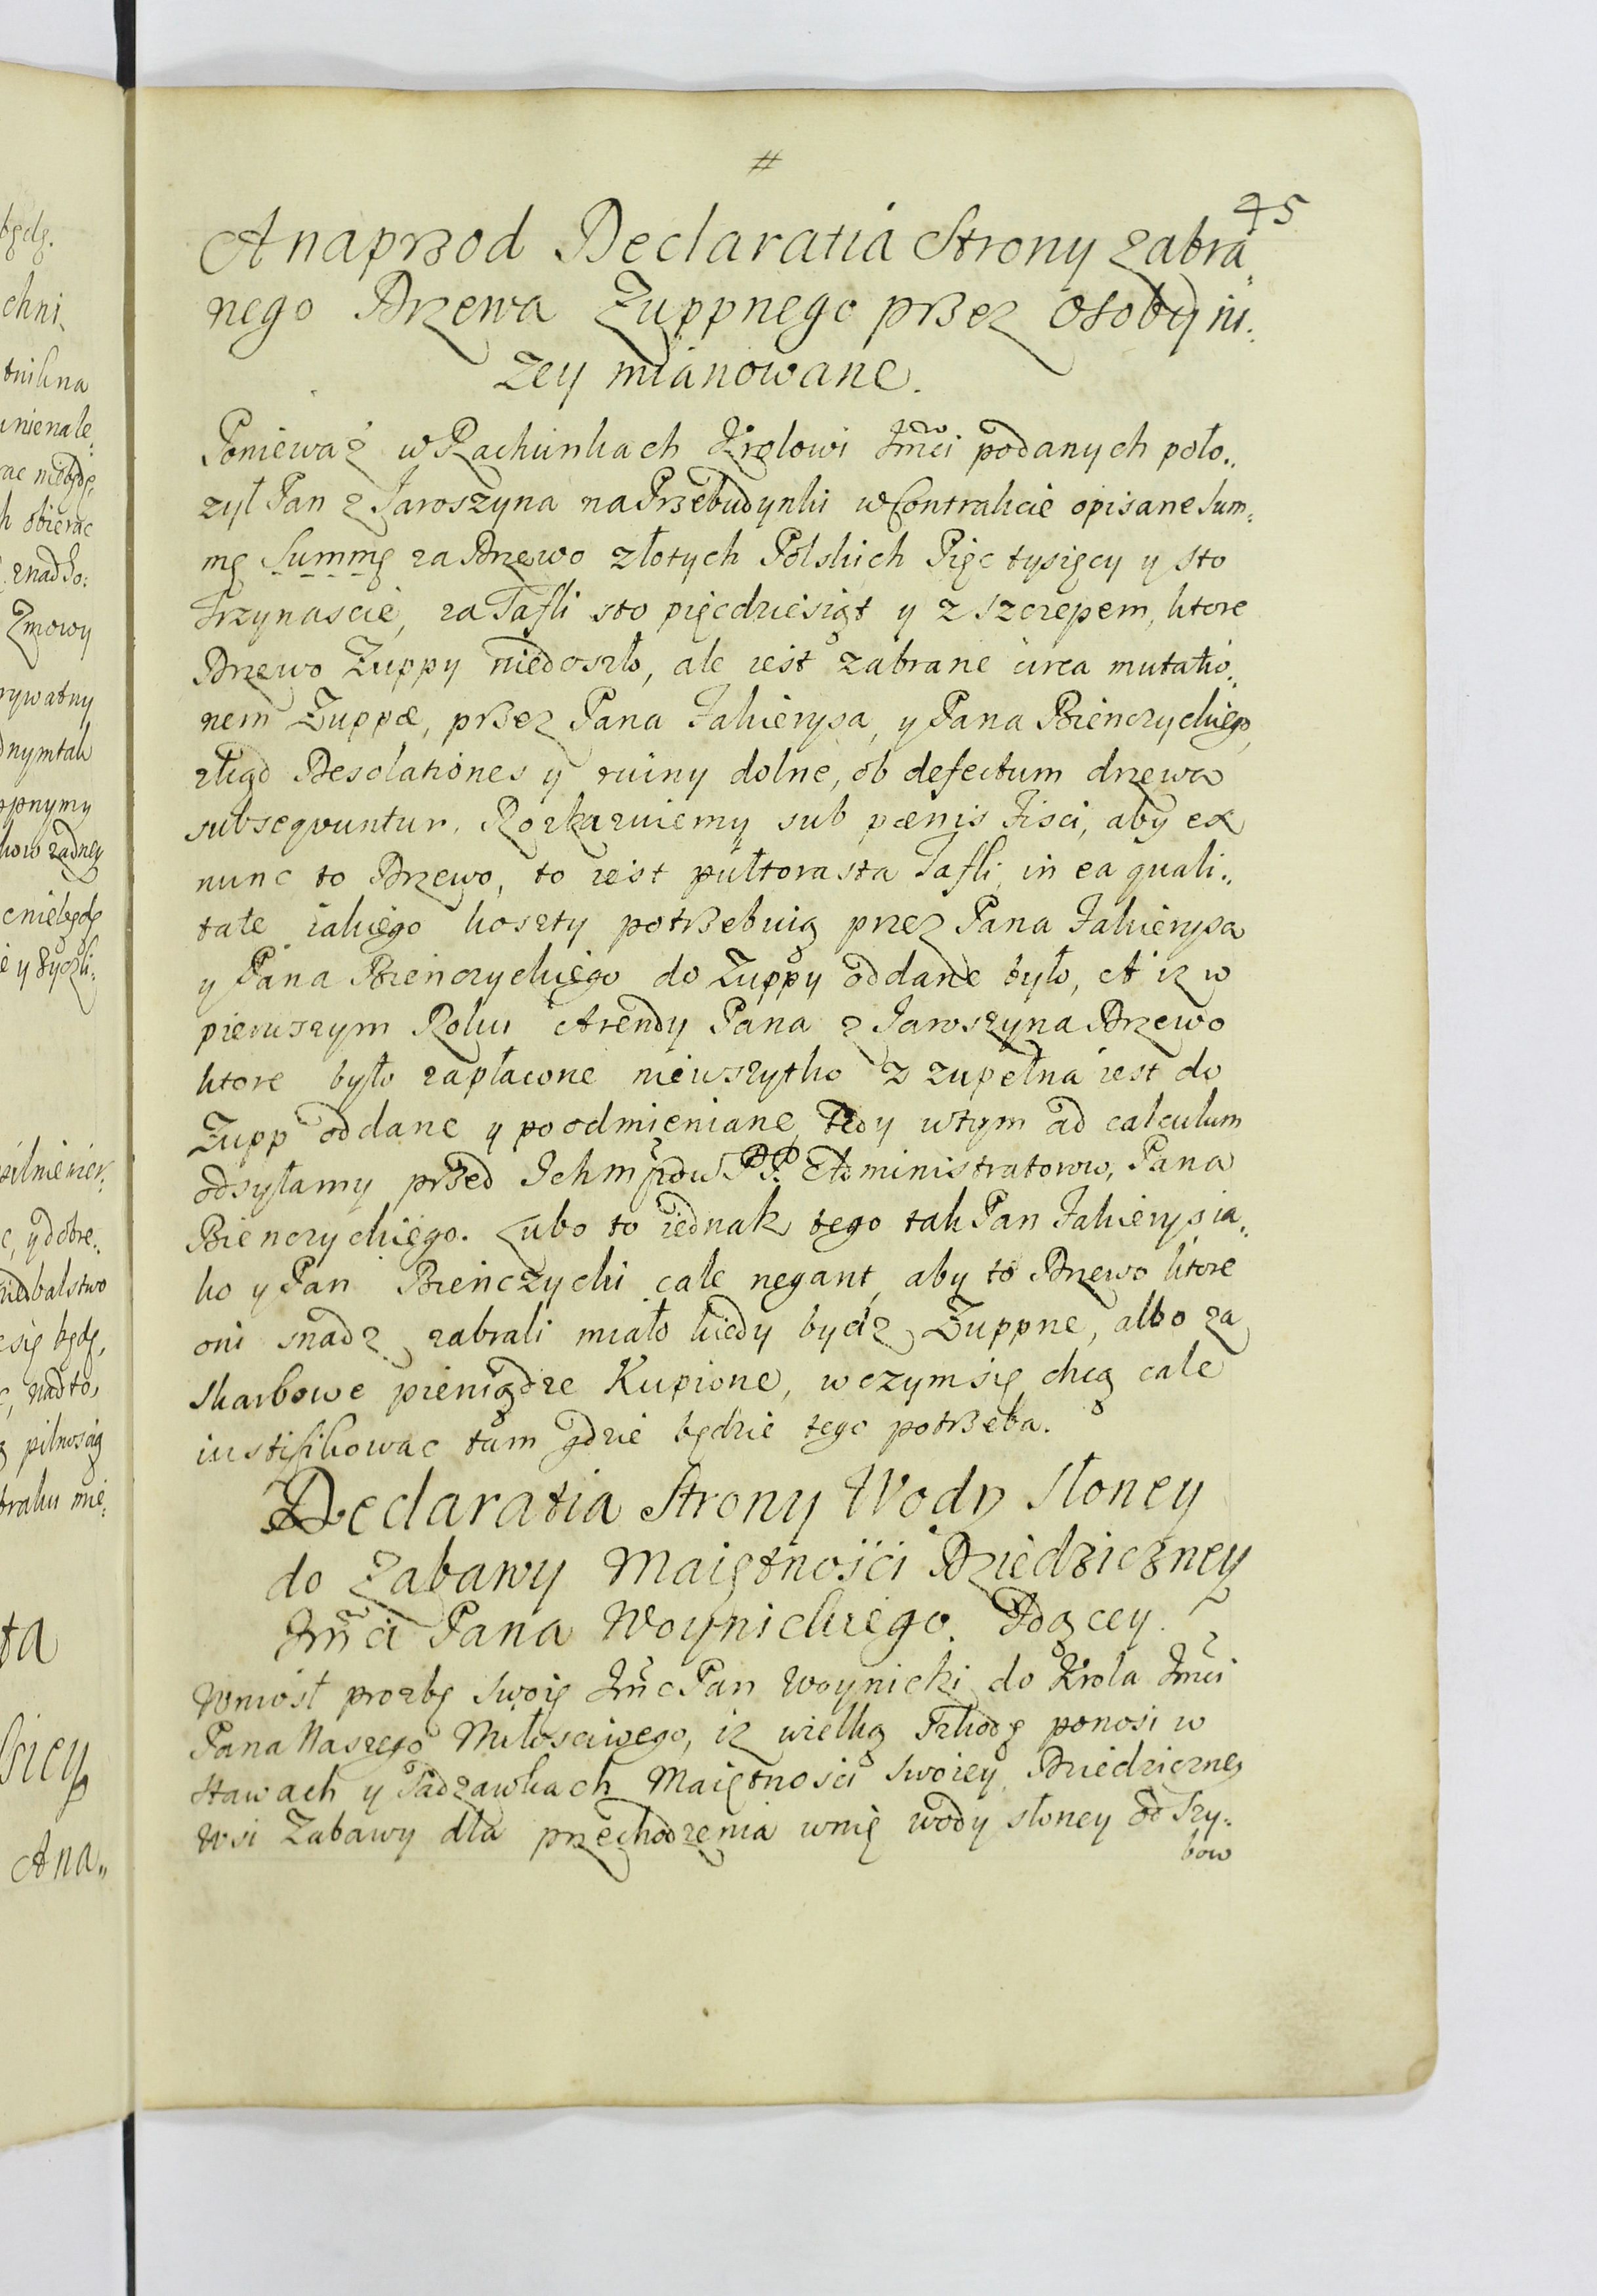 #
45
A naprzod Declaratia Strony zabra„
nego Drzewa Zuppnego przez osoby ni:
zey mianowane.
Ponieważ w Rachunkach Krolowi Jmci podanych poło„
zył Pan z Jaroszyna na Przebudynki w Contrakcie opisane sum„
mę Summę za Drzewo złotych Polskich Pięc tysięcy y sto
Trzynascie, za Tafli sto pięcdziesiąt y z szczepem, ktore
Drzewo Zuppy niedoszło, ale iest zabrane circa mutatio„
nem Zuppæ, przez Pana Jakierysa, y Pana Bienczyckiego,
zkąd Desolationes y ruiny dolne, ob defectum drzewa
subseqvuntur. Rozkazuiemy sub pœnis Fisci, aby ex
nunc to Drzewo, to iest pułtorasta Tafli in ea quali„
tate iakiego koszty potrzebuią przez Pana Jakierysa
y Pana Bienczyckiego do Zuppy oddane było, A iz w
pierwszym Roku Arendy Pana z Jaroszyna Drzewo
ktore było zapłacone niewszytko z zupełna iest do
Zupp oddane y poodmieniane, Tedy wtym ad calculum
odsyłamy przed Ichmciow PP. Administratorow, Pana
Bienczyckiego. Lubo to iednak tego tak Pan Jakierys ia„
ko y Pan Bieńczycki cale negant, aby to Drzewo ktore
oni snadz zabrali miało kiedy bydz Zuppne, albo za
skarbowe pieniądze Kupione, wczymsię chcą cale
iustifikowac tam gdzie będzie tego potrzeba.
Declaratia Strony Wody Słoney
do Zabawy Maiętnośći Dziedziczney
Jmci Pana Woynickiego Idącey.
Wniosł prozbę swoię Jmc Pan Woynicki do Krola Jmci
Pana Naszego Miłosciwego, iz wielką szkodę ponosi w
stawach y Sadzawkach Maiętnosci swoiey Dziedziczney
Wsi Zabawy dla przechodzenia wnię wody słoney od Szy„
bow